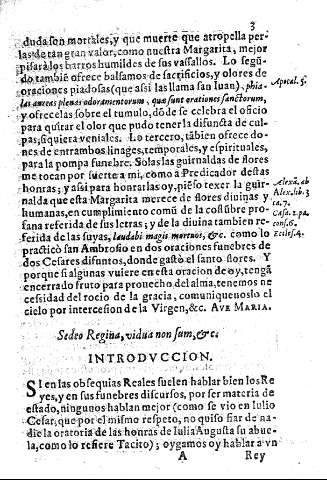 3
duda son mortales, y que muerte que atropella per-
las de tan gran valor, como nuestra Margarita, mejor
pisarà los barros humildes de sus vassallos. Lo segũ-
do tambiẽ ofrece balsamos de sacrificios, y olores de
oraciones piadosas (que assi las llama san Iuan) phia-
las aureas plenas odoramentorum, quæ sunt orationes sanctorum,
Apocal. 5.
y ofrecelas sobre el tumulo, dõde se celebra el oficio
para quitar el olor que pudo tener la difuncta de cul-
pas, siquiera veniales. Lo tercero, tãbien ofrece do-
nes de entrambos linages, temporales, y espirituales,
para la pompa funebre. Solas las guirnaldas de flores
me tocan por suerte a mi, como a Predicador destas
honras; y assi para honrarlas oy, piẽso texer la guir-
nalda que esta Margarita merece de flores diuinas y
humanas, en cumplimiento comũ de la costũbre pro-
fana referida de sus letras; y de la diuina tambien re-
ferida de las suyas, laudabi magis mortuos, &c. como lo
Alexã. ab
Alex. lib. 3
ca. 7.
Casa. 1. pa.
cons. 6.
Eclesi. 4.
practicò san Ambrosio en dos oraciones funebres de
dos Cesares difuntos, donde gastò el santo flores. Y
porque si algunas vuiere en esta oracion de oy, tengã
encerrado fruto para prouecho del alma, tenemos ne
cessidad del rocio de la gracia, comuniquenoslo el
cielo por intercesion de la Virgen, &c. AVE MARIA.
Sedeo Regina, vidua non sum, &c.
INTRODVCCION.
SI en las obsequias Reales suelen hablar bien los Re
yes, y en sus funebres discursos, por ser materia de
estado, ningunos hablan mejor (como se vio en Iulio
Cesar, que por el mismo respeto, no quiso fiar de na-
die la oratoria de las honras de Iulia Augusta su abue-
la, como lo refiere Tacito); oygamos oy hablar a vn
A
Rey